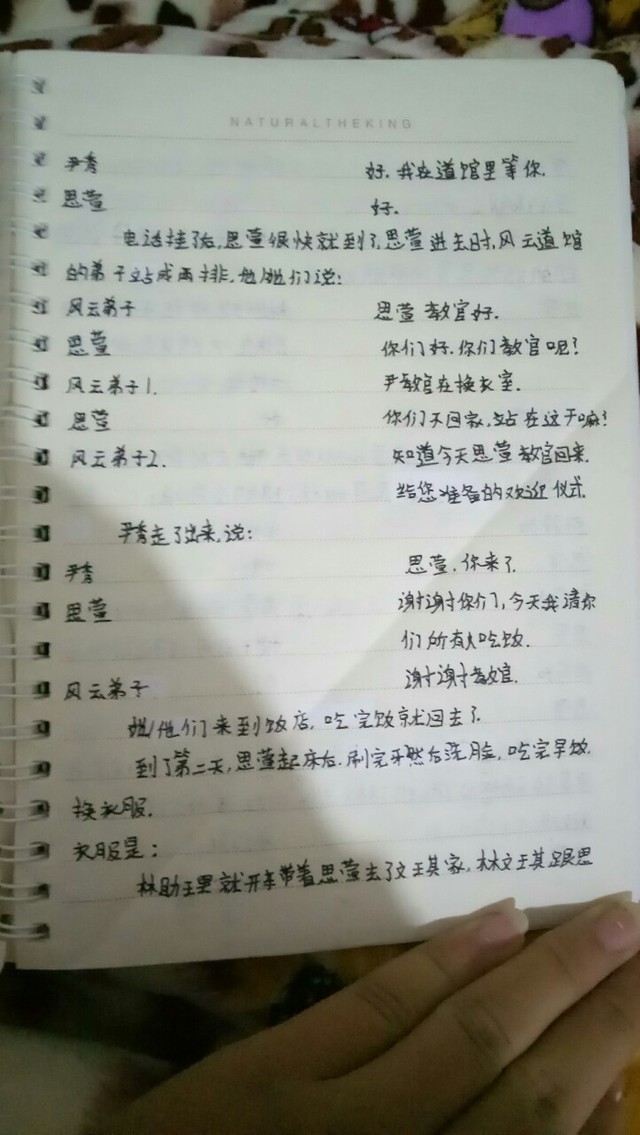 NATURALTHEKING
尹秀 好.我在道馆里等你.
思萱 好.
电话挂了后,思萱很快就到了,思萱进去时,风云道馆
的弟子站成两排,他/她们说:
风云弟子 思萱教官好.
思萱 你们好.你们教官呢?
风云弟子1. 尹教官在换衣室.
思萱 你们不回家,站在这干嘛?
风云弟子2. 知道今天思萱教官回来.
给您准备的欢迎仪式.
尹秀走了出来,说:
尹秀 思萱,你来了.
思萱 谢谢你们,今天我请你
们所有人吃饭.
风云弟子 谢谢教官.
她/他们来到饭店,吃完饭就回去了.
到了第二天,思萱起床后.刷完牙然后洗脸,吃完早饭.
换衣服.
衣服是:
林助理就开车带着思萱去了文琪家,林文琪跟思